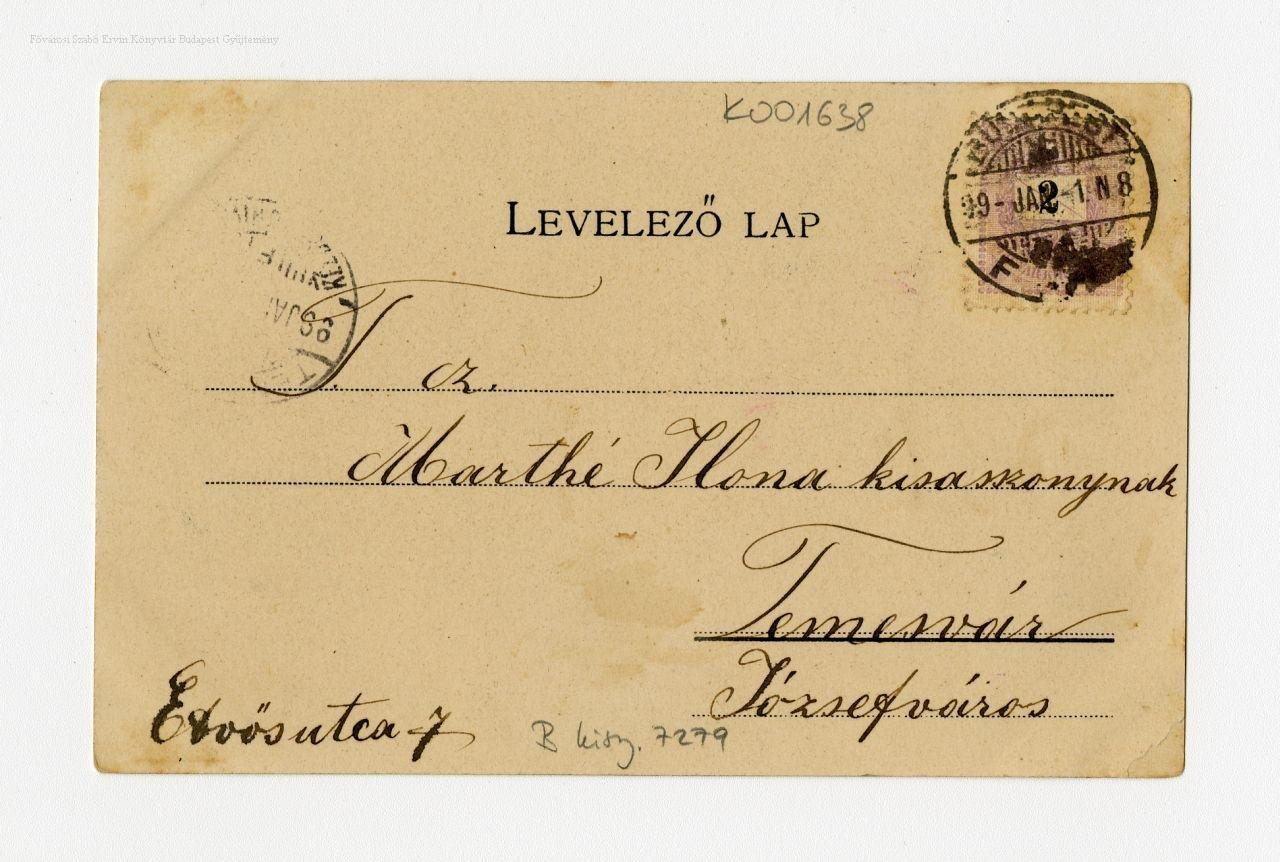 Fővárosi Szabó Ervin Könyvtár Budapest Gyűjtemény
K001638
LEVELEZŐ LAP
99-JAN-1.N8
2
T. cz.
Marthé Ilona kisasszonynak
Temesvár
Józsefváros
Etvösutca 7
B kisz. 7279